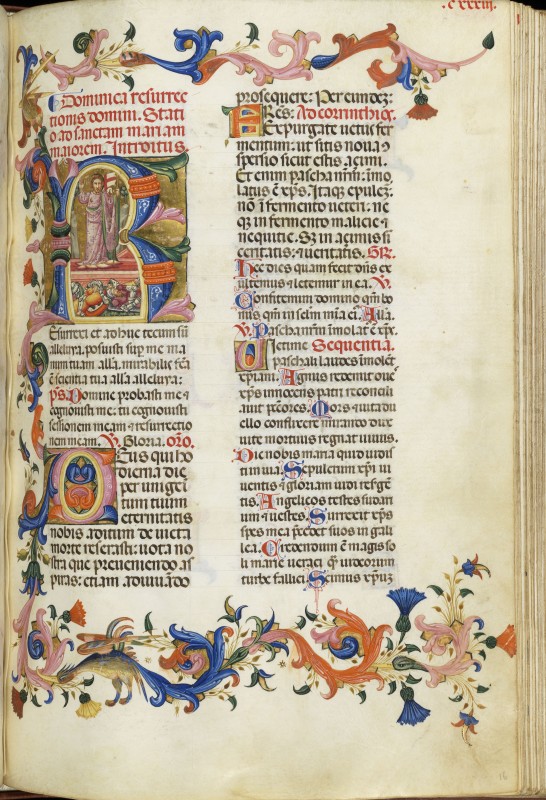 .cxxxiii.
Dominica resurrec
tionis domini. Stati
o ad sanctam mariam
maiorem. Introitus.
R
Esurrexi et adhuc tecum sũ
alleluya. posuisti sup me ma
num tuam alla. mirabilis fcã
ẽ scientia tua alla alleluya:
ps. Domine probasti me ⁊
cognouisti me: tu cognouisti
sessionem meam ⁊ resurrectio
nem meam. V. Gloria. oro.
DEus qui ho
dierna die
per unigeni
tum tuum
eternitatis
nobis aditum deuicta
morte reserasti: uota no
stra que preueniendo as
piras: etiam adiuuãdo
prosequere: Per eundez:
Ad corinthios.
FRes: Expurgate uetus fer
mentum: ut sitis noua ɔ
spersio sicut estis açimi.
Et enim pascha nrm̃ imo
latus ẽ xp̃s. Itaqz epulez:
nõ ĩ fermento ueteri: ne
qz in fermento malicie ⁊
nequitie. Sz in açimis si
ceritatis: ⁊ ueritatis. GR.
Hec dies quam fecit dñs ex
ultemus ⁊ letemur in ea. V.
Confitemini domino qm̃ bo
nus qm̃ in seclm̃ mĩa ei. Alla.
V. Pascha nrm̃ imolatˀ ẽ xp̃s.
Uictime Sequentia.
paschali laudes imolẽt
xp̃iani. Agnus redemit oues
xp̃s innocens patri reconcili
auit pctõres. Mors ⁊ uita du
ello conflixere mirando dux
uite mortuus regnat uiuus.
Dic nobis maria quid uidisti
in uia: Sepulcrum xp̃i ui
uentis ⁊ gloriam uidi resugẽ
tis. Angelicos testes sudari
um ⁊ uestes. Surrexit xp̃s
spes mea pcedet suos in gali
lea. Credendum ẽ magis so
li marie ueraci qʒ iudeorum
turbe fallaci. Scimus xp̃uz
16